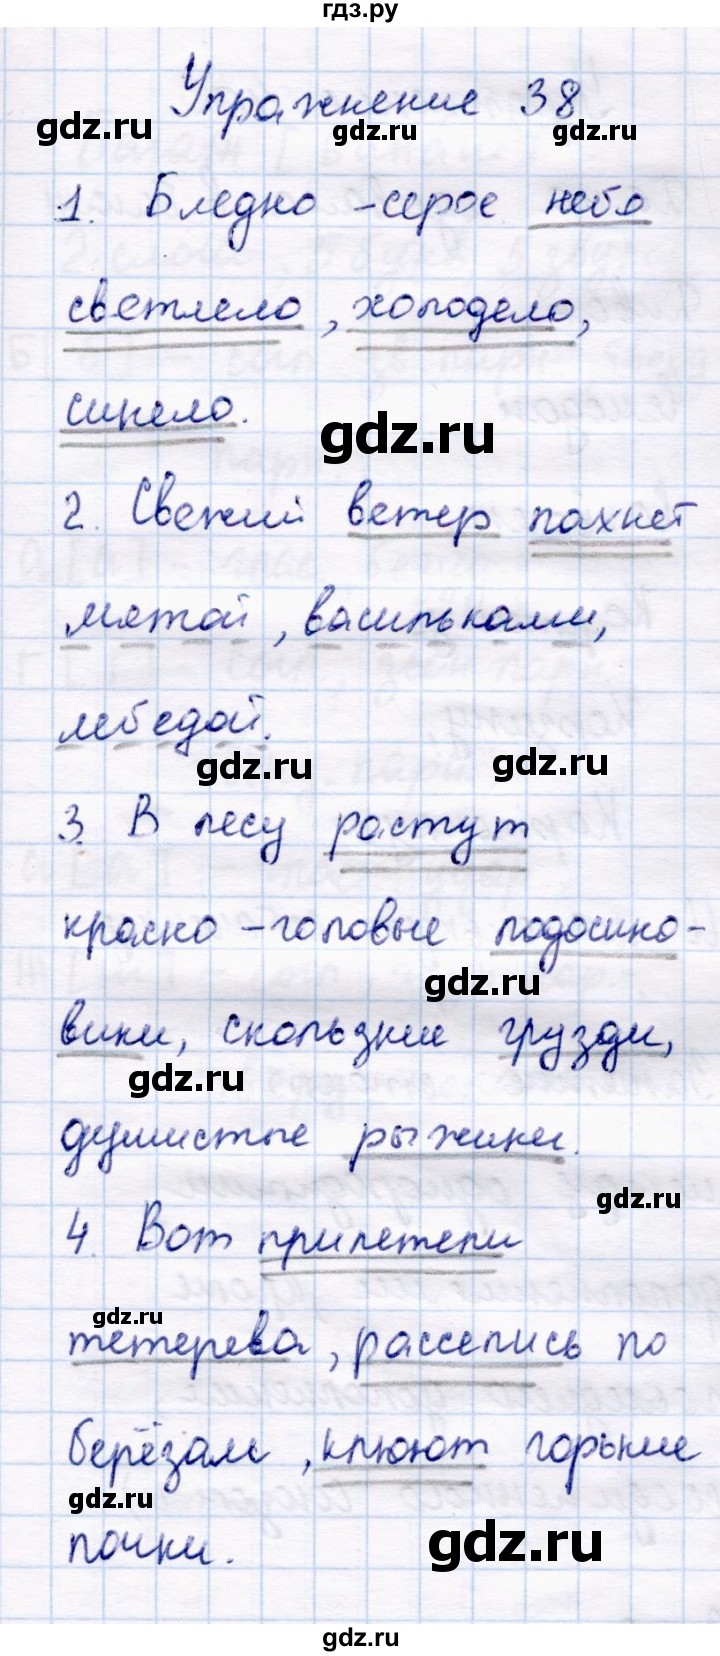 гдз.ру
Упражнение 38
gdz.ru gdz.ru gdz.ru
1. Бледно-серое небо
светлело, холодело,
синело.
gdz.ru
2. Свежий ветер пахнет
мятой, васильками,
лебедой.
gdz.ru gdz.ru
3. В лесу растут
красно-головые подосино-
gdz.ru
вики, скользкие грузди,
gdz.ru
душистые рыжики.
gdz.ru
4. Вот прилетели
gdz.ru
тетерева, расселись по
берёзам, клюют горькие
gdz.ru
почки.
gdz.ru
gdz.ru